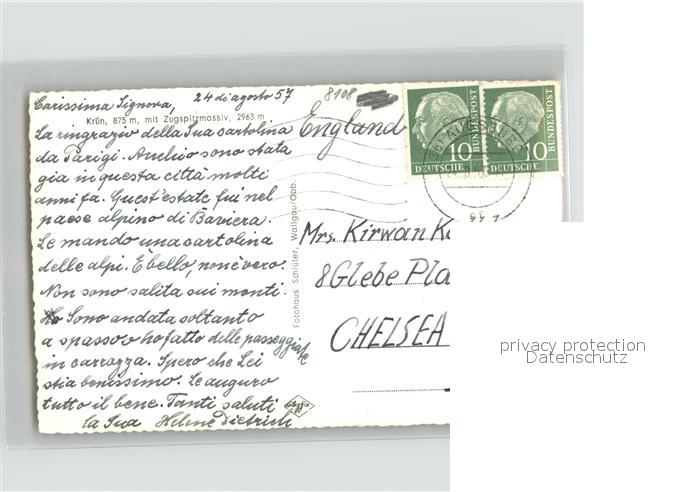 Carissima Signora, 24 di agosto 57
Krün, 875 m, mit Zugspitzmassiv, 2963 m
La ringrazio della Sua cartolina
da Parigi. Anch'io sono stata
gia in questa città molti
anni fa. Quest'estate fui nel
paese alpino di Baviera.
Le mando una cartolina
delle alpi. È bello, non è vero.
Non sono salita sui monti.
Sono andata soltanto
a spasso o ho fatto delle passeggiate
in carrozza. Spero che Lei
stia benissimo. Le auguro
tutto il bene. Tanti saluti
la Sua Helene Dietrich
Fotohaus Schlüter, Wallgau/Obb.
8108
England
10
DEUTSCHE
BUNDESPOST
10
DEUTSCHE
BUNDESPOST
Mrs. Kirwan
8 Glebe Pla
CHELSEA
privacy protection
Datenschutz